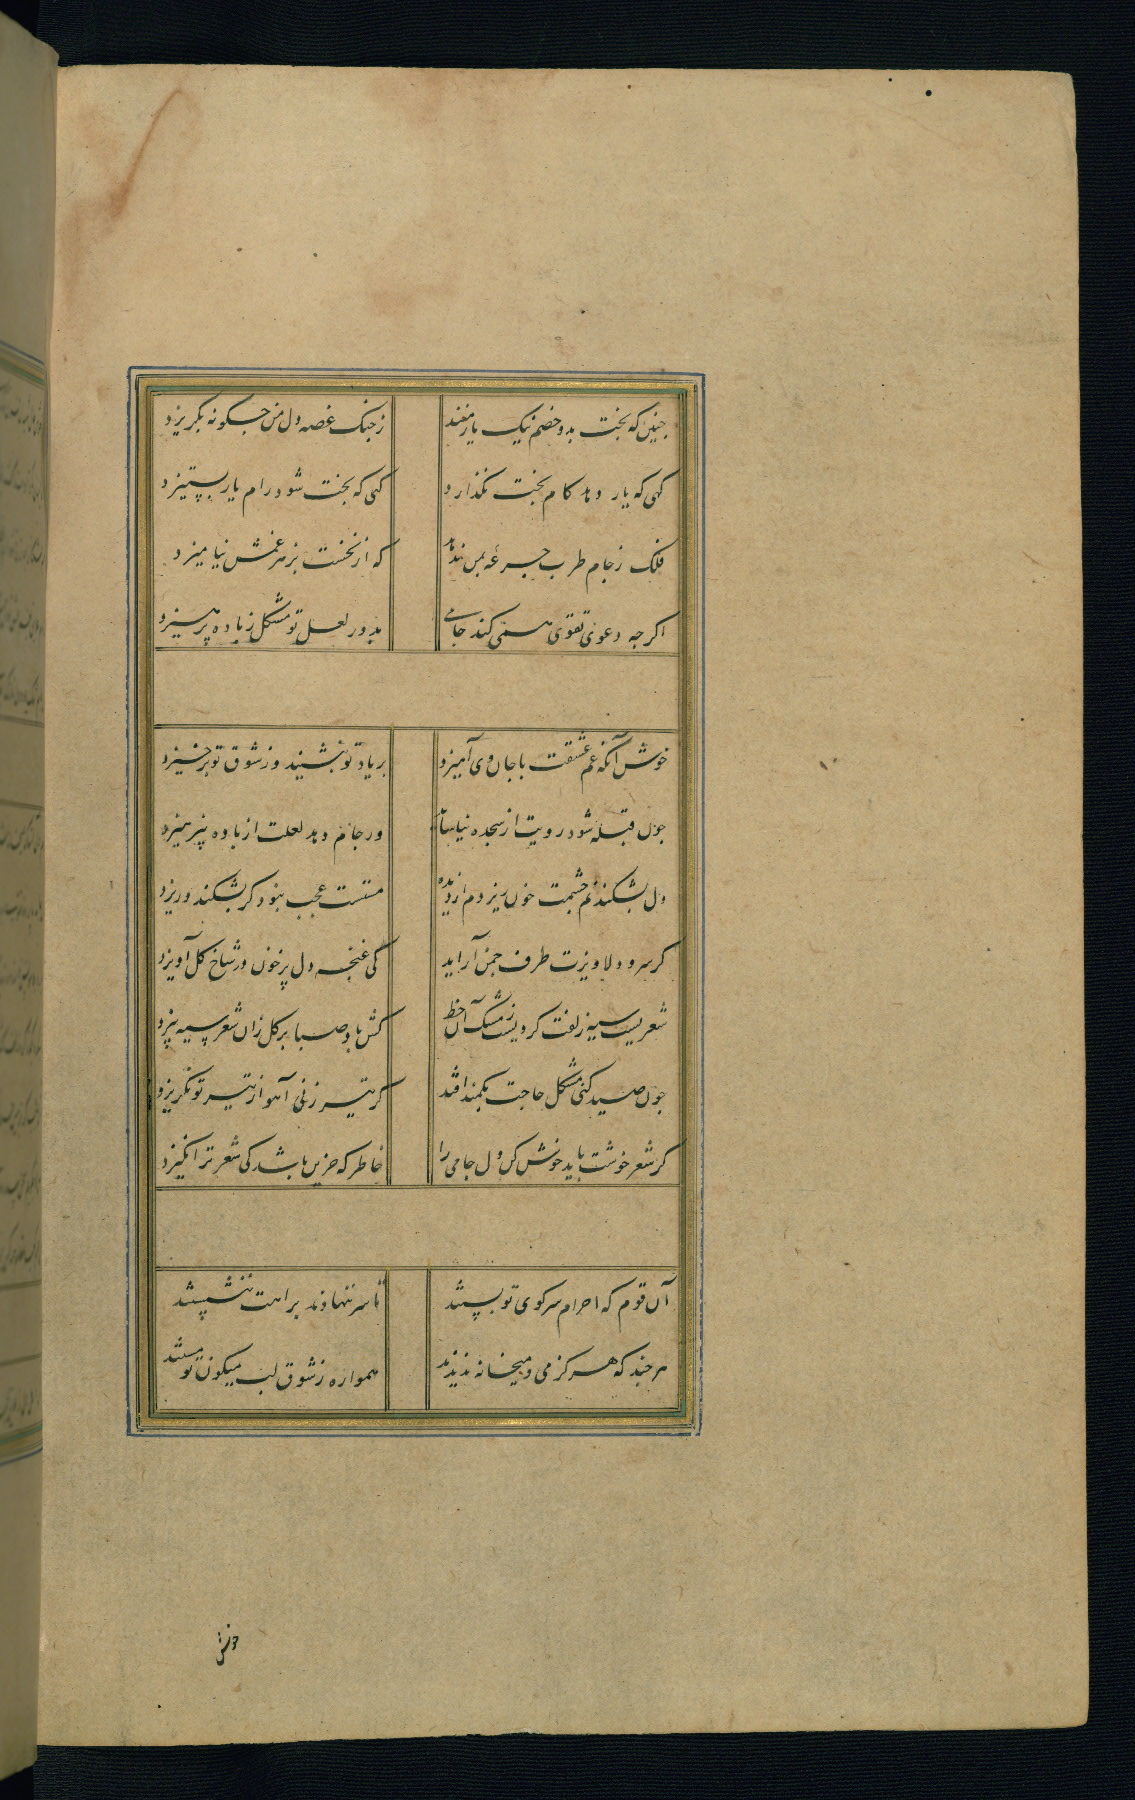 چنین که بخت بد و خصم نیک یار منند
ز چنگ غصه دل من چگونه بگریزد
گهی که یار دهد کام بخت نگذارد
گهی که بخت شود رام یار بستیزد
فلک ز جام طرب جرعه بمن ندهد
که از نخست بزهر غمش نیامیزد
اگرچه دعوی تقوی همی کند جامی
بدور لعل تو مشکل ز باده پرهیزد
خوش آنکه غم عشقت با جان وی آمیزد
بر یاد تو بنشیند وز شوق تو برخیزد
چون قبله شود رویت از سجده نیاساید
ور جام دهد لعلت از باده نپرهیزد
دل بشکندم چشمت خون ریزدم از دیده
مستست عجب نبود گر بشکند و ریزد
گر سرو دلاویزت طرف چمن آراید
کی غنچه دل پر خون در شاخ گل آویزد
شعریست سیه زلفت گرویست ز مشک آن خط
کش باد صبا بر گل زان شعر سیه بیزد
چون صید کنی مشکل حاجت بکمند افتد
گر تیر زنی آهو از تیر تو نگریزد
گر شعر خوشت باید خوش کن دل جامی را
خاطر که حزین باشد کی شعر تر انگیزد
آن قوم که احرام سر کوی تو بستند
تا سر ننهادند براهت ننشستند
هرچند که هرگز می و میخانه ندیدند
همواره ز شوق لب میگون تو مستند